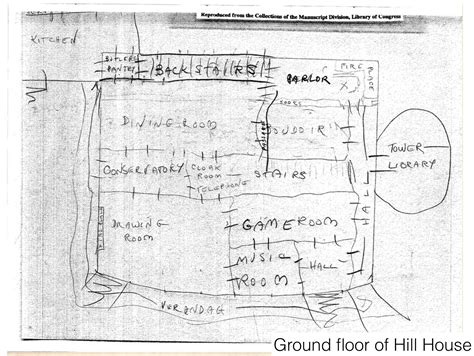 Reproduced from the Collections of the Manuscript Division, Library of Congress
KITCHEN
BUTLERS
PANTRY
BACK STAIRS
PARLOR
FIRE
PLACE
DOORS
DINING-ROOM
BOUDOIR
TOWER
LIBRARY
CONSERVATORY
CLOAK
ROOM
TELEPHONE
STAIRS
HALL
DRAWING
ROOM
GAME ROOM
MUSIC
ROOM
HALL
VERANDAG
Ground floor of Hill House